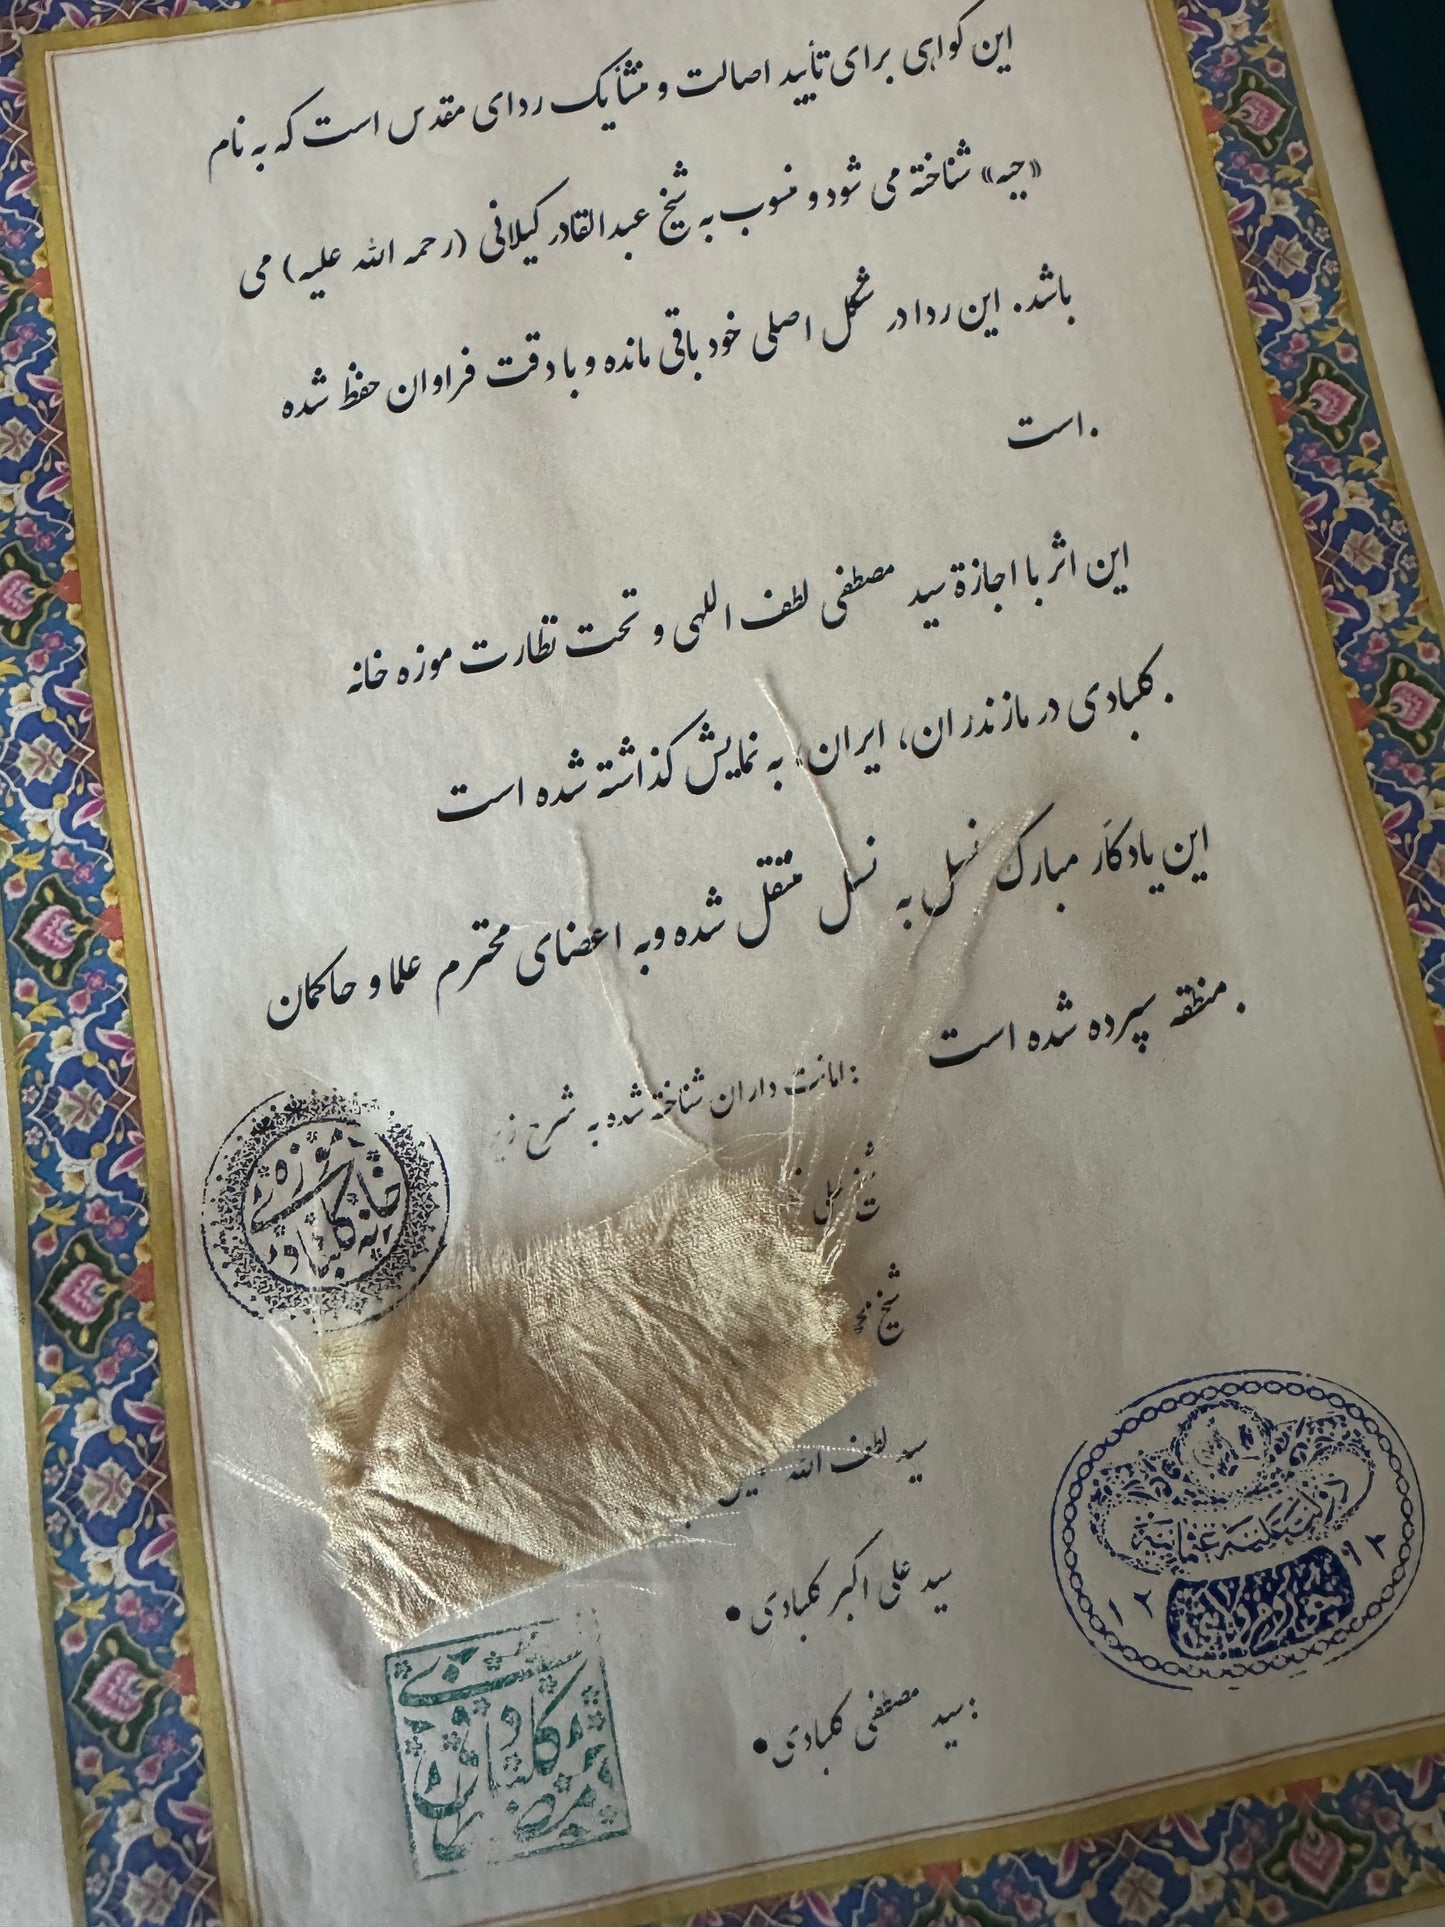 این گواهی برای تأیید اصالت و منشأ یک ردای مقدس است که به نام
«جبه» شناخته می شود و منسوب به شیخ عبدالقادر گیلانی (رحمه الله علیه) می
باشد. این ردا در شکل اصلی خود باقی مانده و با دقت فراوان حفظ شده
.است
این اثر با اجازة سید مصطفی لطف اللهی و تحت نظارت موزه خانه
.کلبادی در مازندران، ایران، به نمایش گذاشته شده است
این یادگار مبارک نسل به نسل منتقل شده و به اعضای محترم علما و حاکمان
.منطقه سپرده شده است
:امانت داران شناخته شده به شرح زیر
شیخ
سید لطف الله
سید علی اکبر کلبادی •
:سید مصطفی کلبادی •
موزه ی
خانه کلبادی
دولت علیه عثمانیه
۱۲۹۳